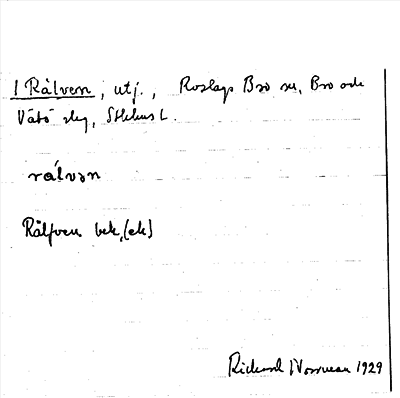 1 Rålven, utj., Roslags Bro sn, Bro och
Vätö slg, Sthlms l.
rålvən
Rålfven bek. (ek)
Rickard 1929